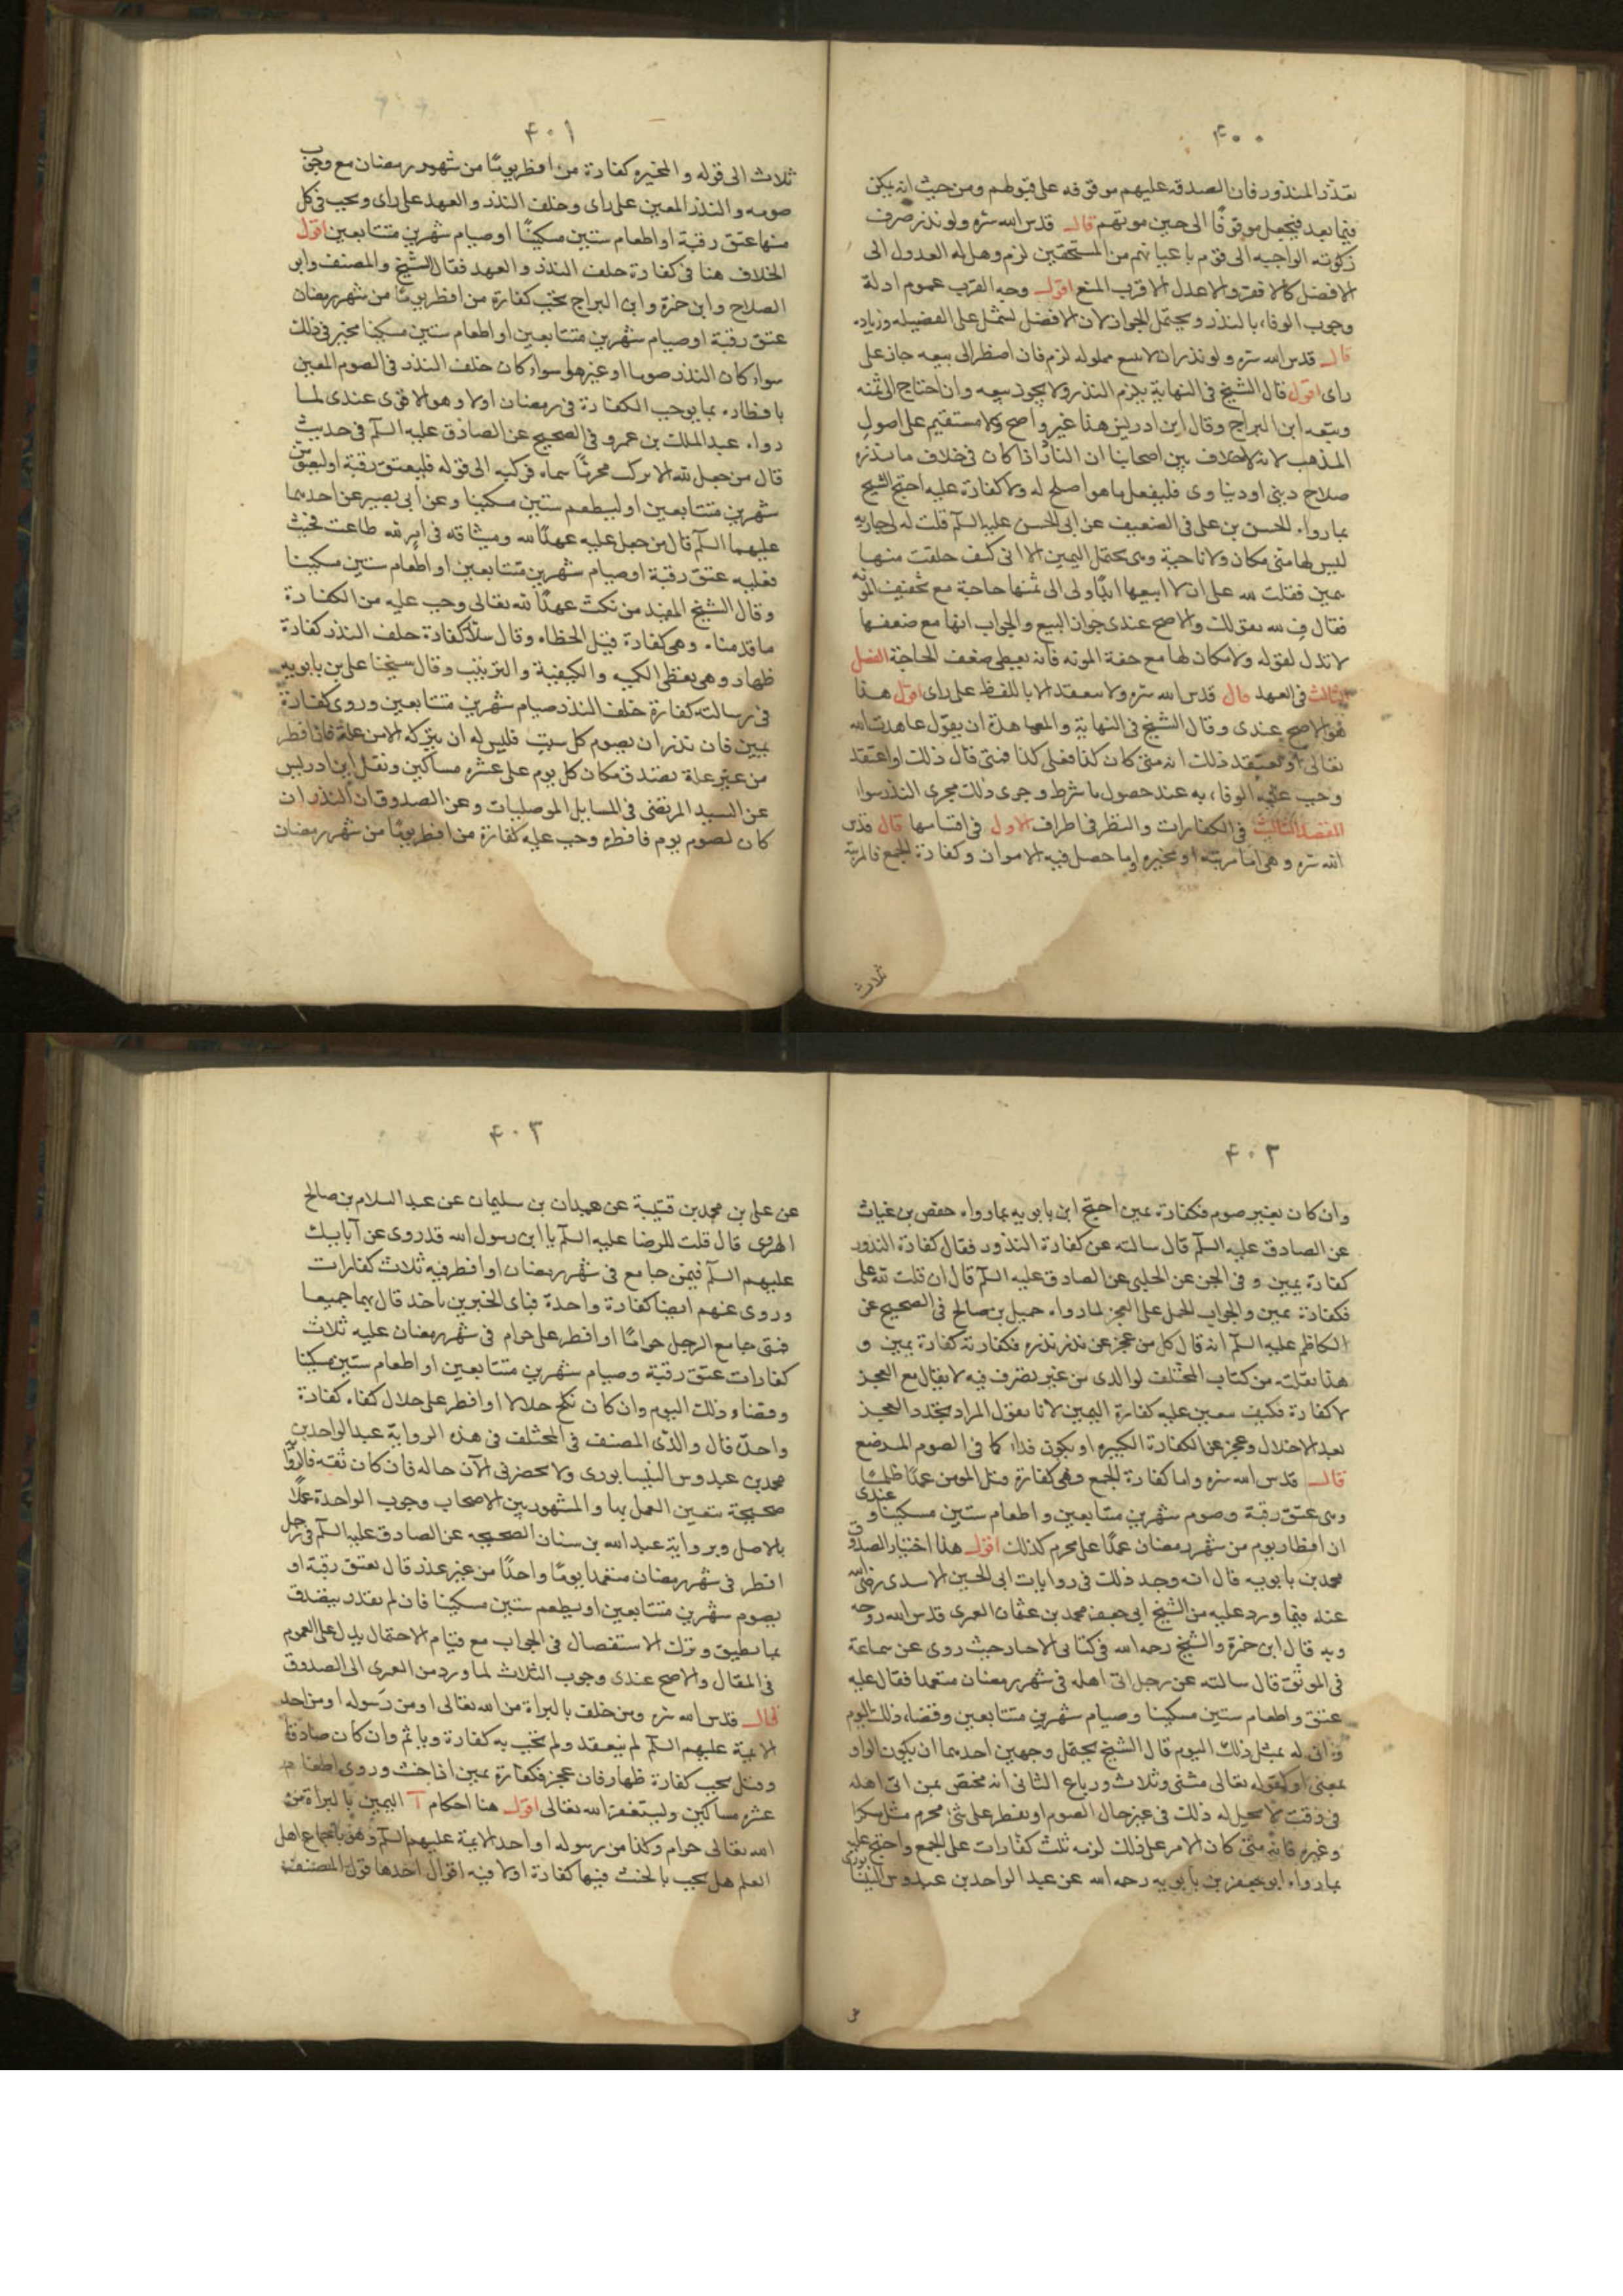 ۴۰۰
تعذر المنذور فان الصدقه عليهم موقوفه على قبولهم ومن حيث انه يمكن
فيما بعد فيجعل موقوفا الى حين موتهم قال قدس الله سره ولو نذر صرف
زكوته الواجبه الى قوم باعيانهم من المستحقين لزم وهل له العدول الى
الافضل كالافقر والاعدل الاقرب المنع اقول وجه القرب عموم ادلة
وجوب الوفاء بالنذر ويحتمل الجواز لان الافضل يشتمل على الفضيله وزياده
قال قدس الله سره ولو نذر ان لا يبيع مملوكه لزم فان اضطر الى بيعه جاز على
راى اقول قال الشيخ فى النهاية يلزم النذر ولا يجوز بيعه وان احتاج الى ثمنه
وتبعه ابن البراج وقال ابن ادريس هذا غير واضح ولا مستقيم على اصول
المذهب لانه لا خلاف بين اصحابنا ان الناذر اذا كان فى خلاف ما نذره
صلاح دينى او دنياوى فليفعل ما هو اصلح له ولا كفارة عليه احتج الشيخ
بما رواه الحسن بن على فى الضعيف عن ابى الحسن عليه السلم قلت له لى جاريه
ليس لها منى مكان ولا ناحية وهى تحتمل اليمين الا انى كنت حلفت منها
بمين فقلت لله على ان لا ابيعها ابدا ولى الى ثمنها حاجة مع تخفيف المونه
فقال ف لله بقولك والاصح عندى جواز البيع والجواب انها مع ضعفها
لا تدل لقوله ولا مكان لها مع خفة المونه فانه يعطى ضعف الحاجة الفصل
الثالث فى العهد قال قدس الله سره ولا ينعقد الا باللفظ على راى اقول هذا
هو الاصح عندى وقال الشيخ فى النهاية والمعاهدة ان يقول عاهدت الله
تعالى او يعتقد ذلك انه متى كان كذا فعلى كذا فمتى قال ذلك او اعتقد
وجب عليه الوفاء به عند حصول ما شرط وجرى ذلك مجرى النذر سواء
المقصد الثالث فى الكفارات والنظر فى اطراف الاول فى اقسامها قال قدس
الله سره وهى اما مرتبه او مخيره او ما حصل فيه الامران وكفارة الجمع فالمرتبه
ثلاث
۴۰۱
ثلاث الى قوله والمخيره كفارة من افطر يوما من شهر رمضان مع وجوب
صومه والنذر المعين على راى وخلف النذر والعهد على راى ويجب فى كل
منها عتق رقبة او اطعام ستين مسكينا او صيام شهرين متتابعين اقول
الخلاف هنا فى كفارة خلف النذر والعهد فقال الشيخ والمصنف وابو
الصلاح وابن حمزة وابن البراج يجب كفارة من افطر يوما من شهر رمضان
عتق رقبة او صيام شهرين متتابعين او اطعام ستين مسكينا مخير فى ذلك
سواء كان النذر صوما او غيره وسواء كان خلف النذر فى الصوم المعين
بافطاره بما يوجب الكفارة فى رمضان اولا وهو الاقوى عندى لما
رواه عبد الملك بن عمرو فى الصحيح عن الصادق عليه السلم فى حديث
قال من جعل لله الا يركب محرما سماه فركبه الى قوله فليعتق رقبة او ليصم
شهرين متتابعين او ليطعم ستين مسكينا وعن ابى بصير عن احدهما
عليهما السلم قال من جعل عليه عهدا لله وميثاقه فى امر لله طاعت فحنث
فعليه عتق رقبة او صيام شهرين متتابعين او اطعام ستين مسكينا
وقال الشيخ المفيد من نكث عهدا لله تعالى وجب عليه من الكفارة
ما قدمناه وهى كفارة قتل الخطاء وقال سلار كفارة خلف النذر كفارة
ظهار وهى يعطى الكميه والكيفية والترتيب وقال شيخنا على بن بابويه
فى رسالته كفارة خلف النذر صيام شهرين متتابعين وروى كفارة
يمين فان نذر ان يصوم كل سبت فليس له ان يتركه الا من علة فان افطر
من غير علة تصدق مكان كل يوم على عشره مساكين ونقل ابن ادريس
عن السيد المرتضى فى المسايل الموصليات وعن الصدوق ان النذر ان
كان لصوم يوم فافطره وجب عليه كفارة من افطر يوما من شهر رمضان
۴۰۲
وان كان بغير صوم فكفارة يمين احتج ابن بابويه بما رواه حفص بن غياث
عن الصادق عليه السلم قال سالته عن كفارة النذور فقال كفارة النذور
كفارة يمين و فى الحسن عن الحلبى عن الصادق عليه السلم قال ان قلت لله على
فكفارة يمين والجواب الحمل على العجز لما رواه جميل بن صالح فى الصحيح عن
الكاظم عليه السلم انه قال كل من عجز عن نذر نذره فكفارته كفارة يمين و
هذا نقلته من كتاب المختلف لوالدى من غير تصرف فيه لا يقال مع العجز
لا كفارة فكيف يتعين عليه كفارة اليمين لانا نقول المراد تجدد العجز
بعد الاخلال وعجز عن الكفارة الكبيره او يكون فداء كما فى الصوم المرضع
قال قدس الله سره واما كفارة الجمع وهى كفارة قتل المومن عمدا ظلما
وهى عتق رقبة وصوم شهرين متتابعين واطعام ستين مسكينا وعندى
ان افطار يوم من شهر رمضان عمدا على محرم كذلك اقول هذا اختيار الصدوق
محمد بن بابويه قال انه وجد ذلك فى روايات ابى الحسين الاسدى رضى الله
عنه فيما ورد عليه من الشيخ ابى جعفر محمد بن عثمان العمرى قدس الله روحه
وبه قال ابن حمزة والشيخ رحمه الله فى كتابى الاخبار حيث روى عن سماعة
فى الموثق قال سالته عن رجل اتى اهله فى شهر رمضان متعمدا فقال عليه
عتق واطعام ستين مسكينا وصيام شهرين متتابعين وقضاء ذلك اليوم
وانى له بمثل ذلك اليوم قال الشيخ يحتمل وجهين احدهما ان يكون الواو
بمعنى او كقوله تعالى مثنى وثلاث ورباع الثانى انه مختص بمن اتى اهله
فى وقت لا يحل له ذلك فى غير حال الصوم او يفطر على شئ محرم مثل مسكر
وغيره فانه متى كان الامر على ذلك لزمه ثلث كفارات على الجمع واحتج عليه
بما رواه ابو جعفر بن بابويه رحمه الله عن عبد الواحد بن عبدوس النيسابورى
۴۰۳
عن على بن محمد بن قتيبة عن حمدان بن سليمان عن عبد السلام بن صالح
الهروى قال قلت للرضا عليه السلم يا ابن رسول الله قد روى عن آبايك
عليهم السلم فيمن جامع فى شهر رمضان او افطر فيه ثلاث كفارات
وروى عنهم ايضا كفارة واحدة فباى الخبرين ناخذ قال بهما جميعا
فمتى جامع الرجل حراما او افطر على حرام فى شهر رمضان عليه ثلاث
كفارات عتق رقبة وصيام شهرين متتابعين او اطعام ستين مسكينا
وقضاء ذلك اليوم وان كان نكح حلالا او افطر على حلال كفاه كفارة
واحدة قال والدى المصنف فى المختلف فى هذه الرواية عبد الواحد بن
محمد بن عبدوس النيسابورى ولا يحضرنى الآن حاله فان كان ثقه فالرواية
صحيحة يتعين العمل بها والمشهور بين الاصحاب وجوب الواحدة عملا
بالاصل وبرواية عبد الله بن سنان الصحيحه عن الصادق عليه السلم فى رجل
افطر فى شهر رمضان متعمدا يوما واحدا من غير عذر قال يعتق رقبة او
يصوم شهرين متتابعين او يطعم ستين مسكينا فان لم يقدر يتصدق
بما يطيق وترك الاستفصال فى الجواب مع قيام الاحتمال يدل على العموم
فى المقال والاصح عندى وجوب الثلاث لما ورد من العمرى الى الصدوق
قال قدس الله سره ومن حلف بالبراة من الله تعالى او من رسوله او من احد
الايمة عليهم السلم لم ينعقد ولم تجب به كفارة وياثم وان كان صادقا
وقيل يجب كفارة ظهار فان عجز فكفارة يمين اذا حنث وروى اطعام
عشره مساكين وليستغفر الله تعالى اقول هنا احكام آ اليمين بالبراة من
الله تعالى حرام وكذا من رسوله او احد الايمة عليهم السلم وهو باجماع اهل
العلم هل يجب بالحنث فيها كفارة اولا فيه اقوال احدها قول المصنف